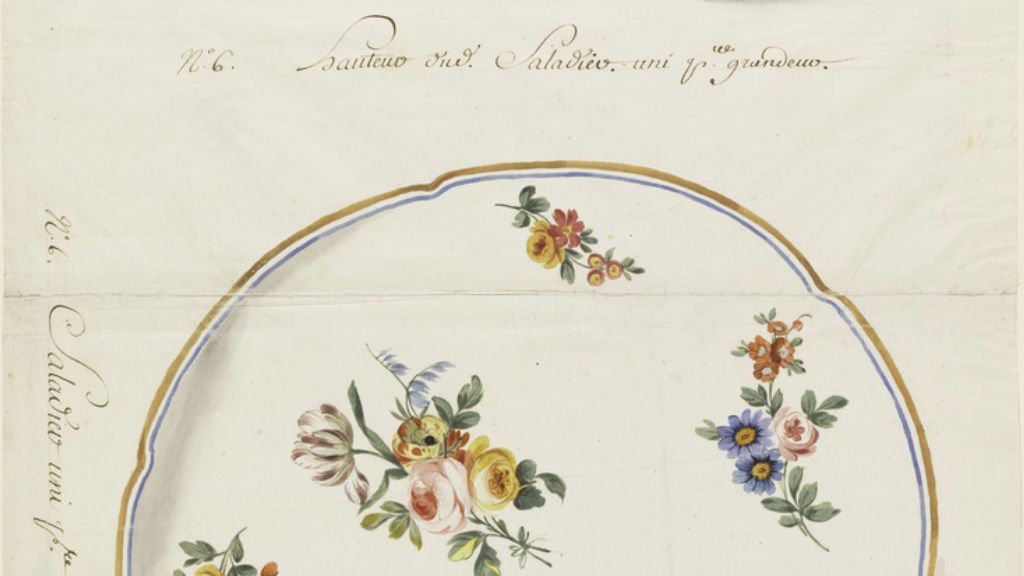 N.º 6. hauteur dud. Saladier. uni p.re grandeur.
N.º 6. Saladier uni p.re